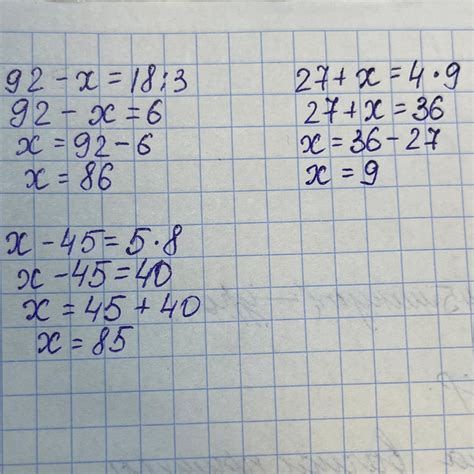 92 - x = 18 : 3
92 - x = 6
x = 92 - 6
x = 86
27 + x = 4 · 9
27 + x = 36
x = 36 - 27
x = 9
x - 45 = 5 · 8
x - 45 = 40
x = 45 + 40
x = 85